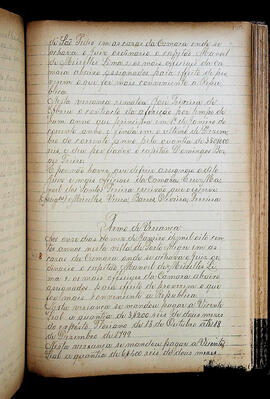 de São Pedro em as casas da Camara onde se
achava o Juiz ordinario o capitão Manoel
de Meirelles Lima e os mais officiaes da ca
mara abaixo assignados para effeito de pro
verem o que for mais conveniente a Repu
blica
Nesta vereança rematou José Pereira de
o contracto da afferição por tempo de
hum anno que principiou em 1º de Janeiro do
corrente anno e finda em o ultimo de Dezem
bro do corrente anno pela quantia de
reis, e deu por fiador o capitão Domingos
E por não haver que deferir assignão o dito
Juiz e mais officiaes da Camara eu
dos Santos Pereira escrivão que o escrevi
Meirelles Barros Oliveira Ferreira
Termo de Vereança
Aos onze dias do mez de Janeiro de mil oito cen
tos annos nesta villa de Porto Alegre em as
casas da Camara onde se achava o Juiz or
dinario o capitão Manoel de Meirelles Li
ma e os mais officiaes da Camara abaixo
assignados para effeito de proverem o que
for mais conveniente a Republica
Nesta vereança se mandou pagar a Vicente
Leal a quantia de 3$200 reis de dous mezes
do exposto Floriano de 18 de Outubro até 18
de Dezembro de 1799.
Nesta vereança se mandou pagar a Vicente
Leal a quantia de 6$400 reis de dous mezes